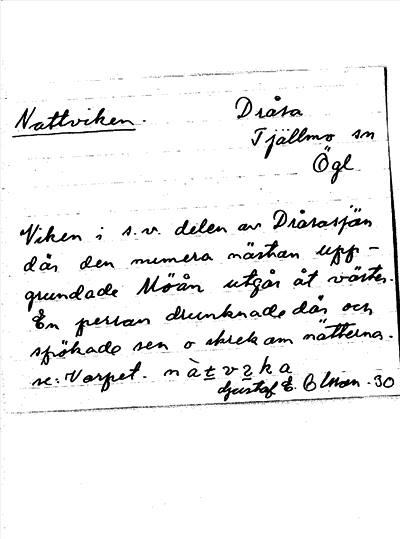 Nattviken.
Dråsa
Tjällmo sn
Ögl
Viken i s.v. delen av Dråsasjön
där den numera nästan upp-
grundade Möån utgår åt väster.
En person drunknade där och
spökade sen o skrek om nätterna.
se: Varpet. nàtvıka
Gustaf E. Olson. 30